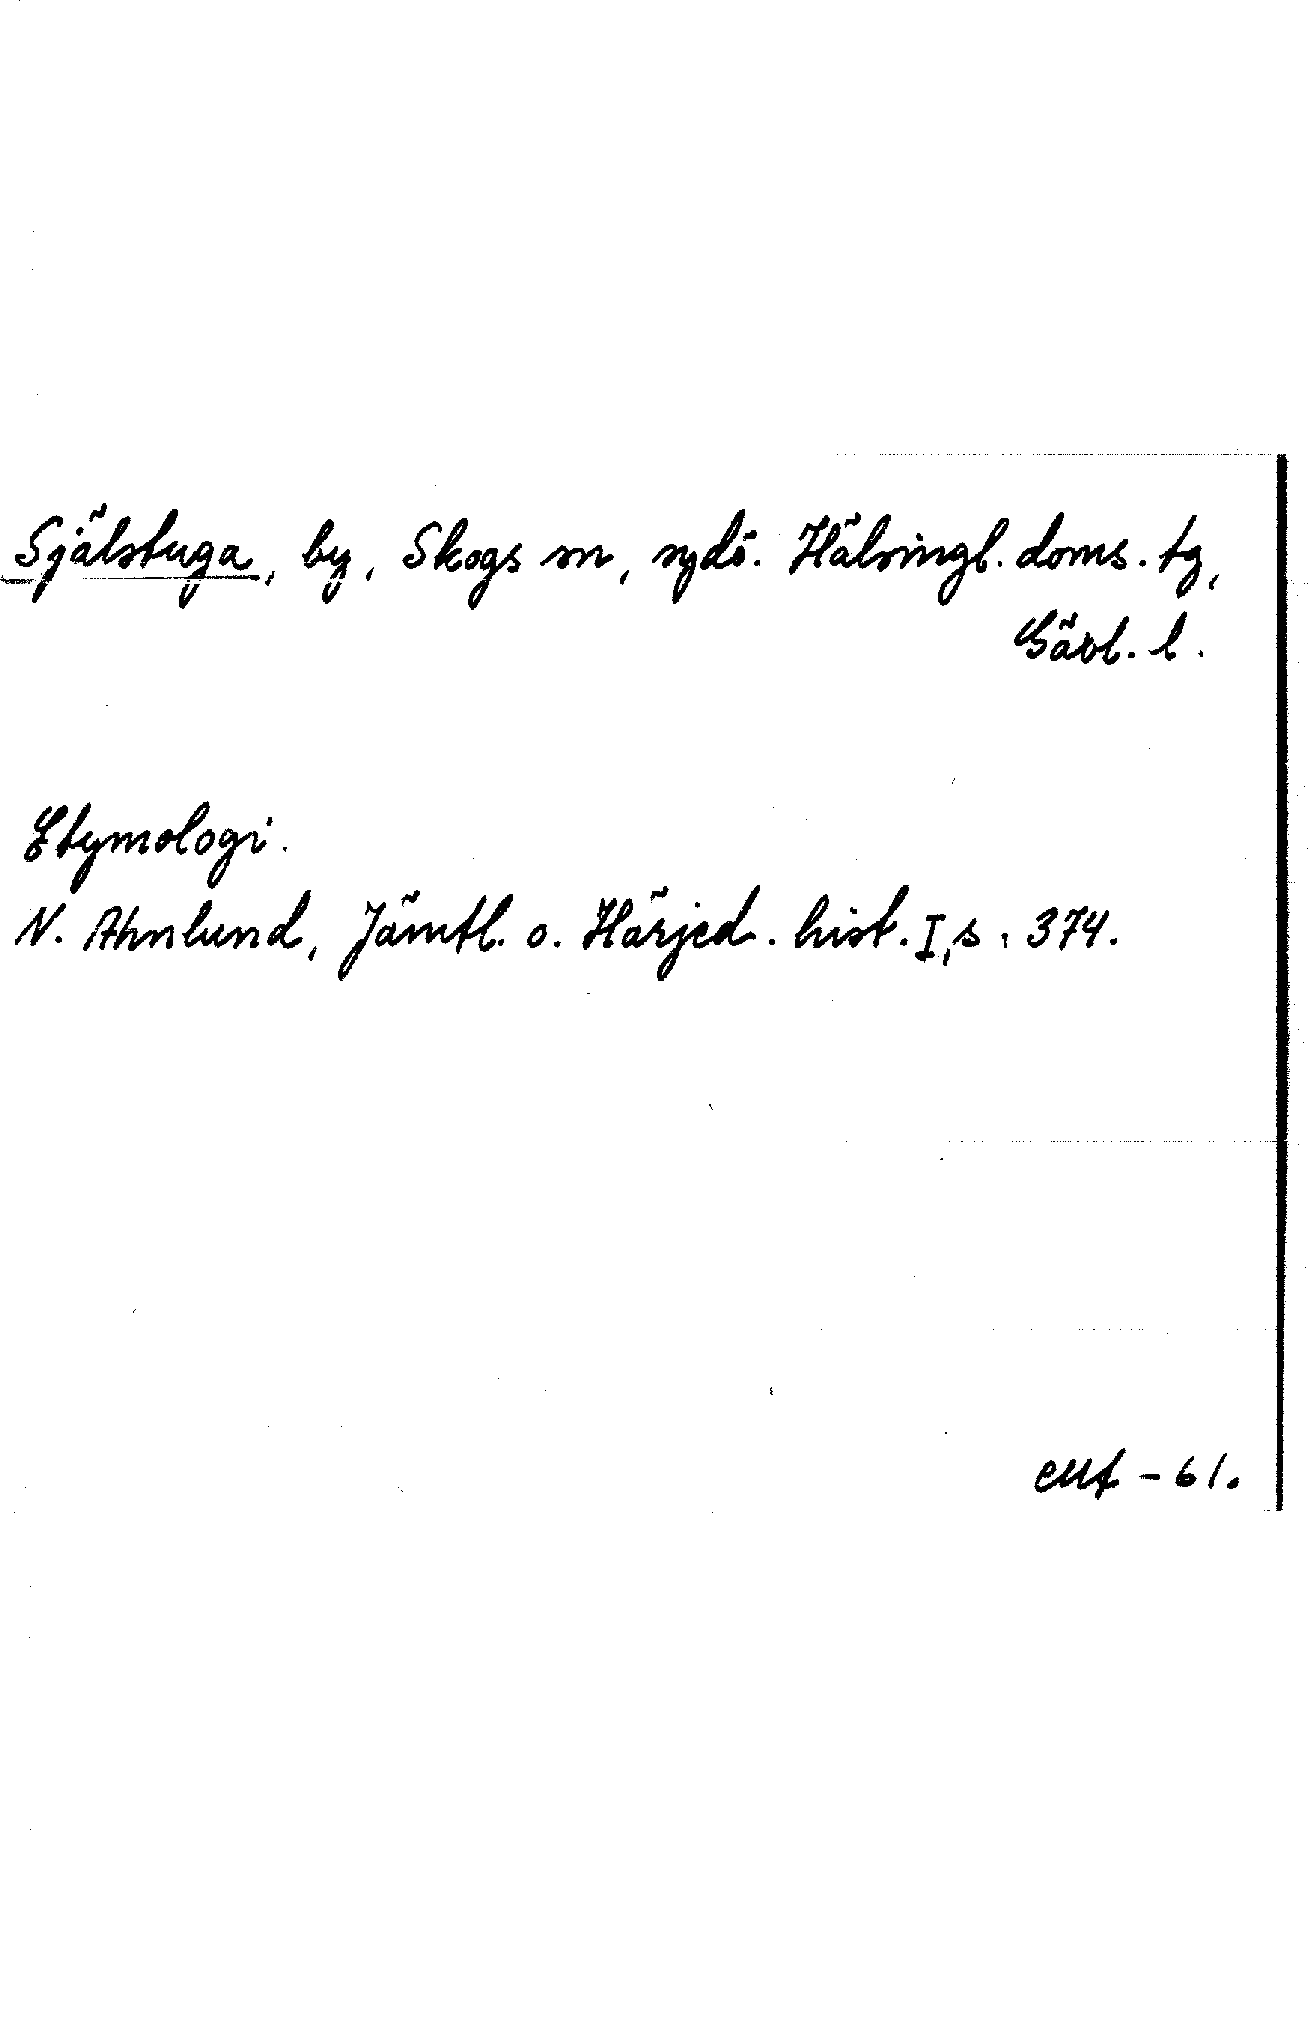 Själstuga, by, Skogs sn, sydö. Hälsingl. doms. tg,
Gävl. l.
Etymologi.
N. Ahnlund, Jämtl. o. Härjed. hist. I, s. 374.
- 61.